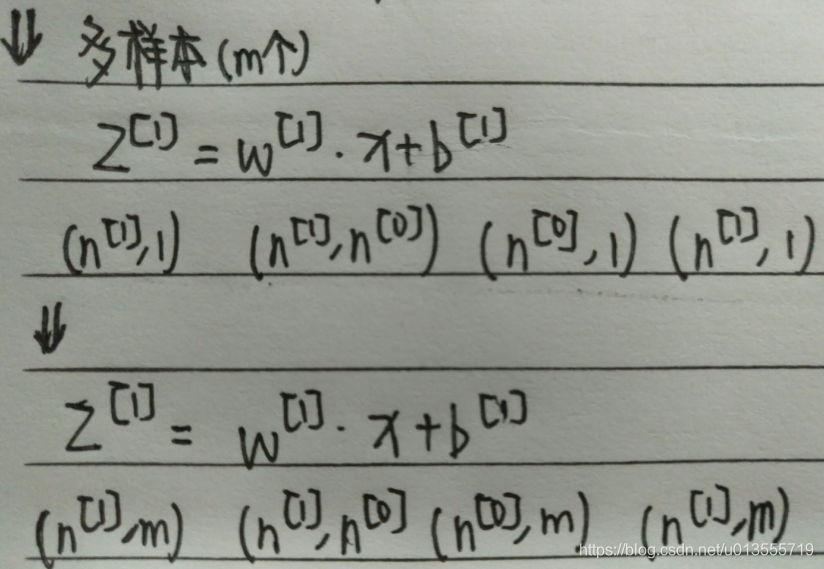 ⇓ 多样本(m个)
Z^[1] = W^[1] · x + b^[1]
(n^[1], 1) (n^[1], n^[0]) (n^[0], 1) (n^[1], 1)
⇓
Z^[1] = W^[1] · x + b^[1]
(n^[1], m) (n^[1], n^[0] (n^[0], m) (n^[1], m)
https://blog.csdn.net/u013555719